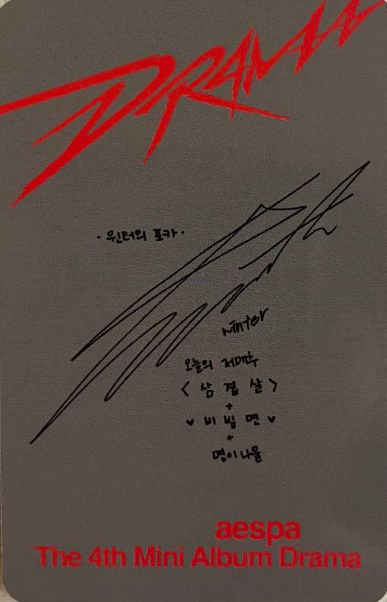 DRAMA
·윈터의 포카·
winter
오늘의 저메추
< 삼 겹 살 >
+
♥ 비 빔 면 ♥
+
명이나물
aespa
The 4th Mini Album Drama